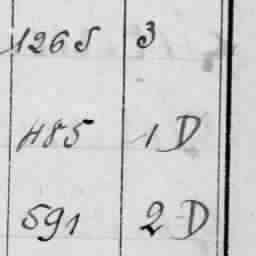 1265 3
485 1 D
591 2 D